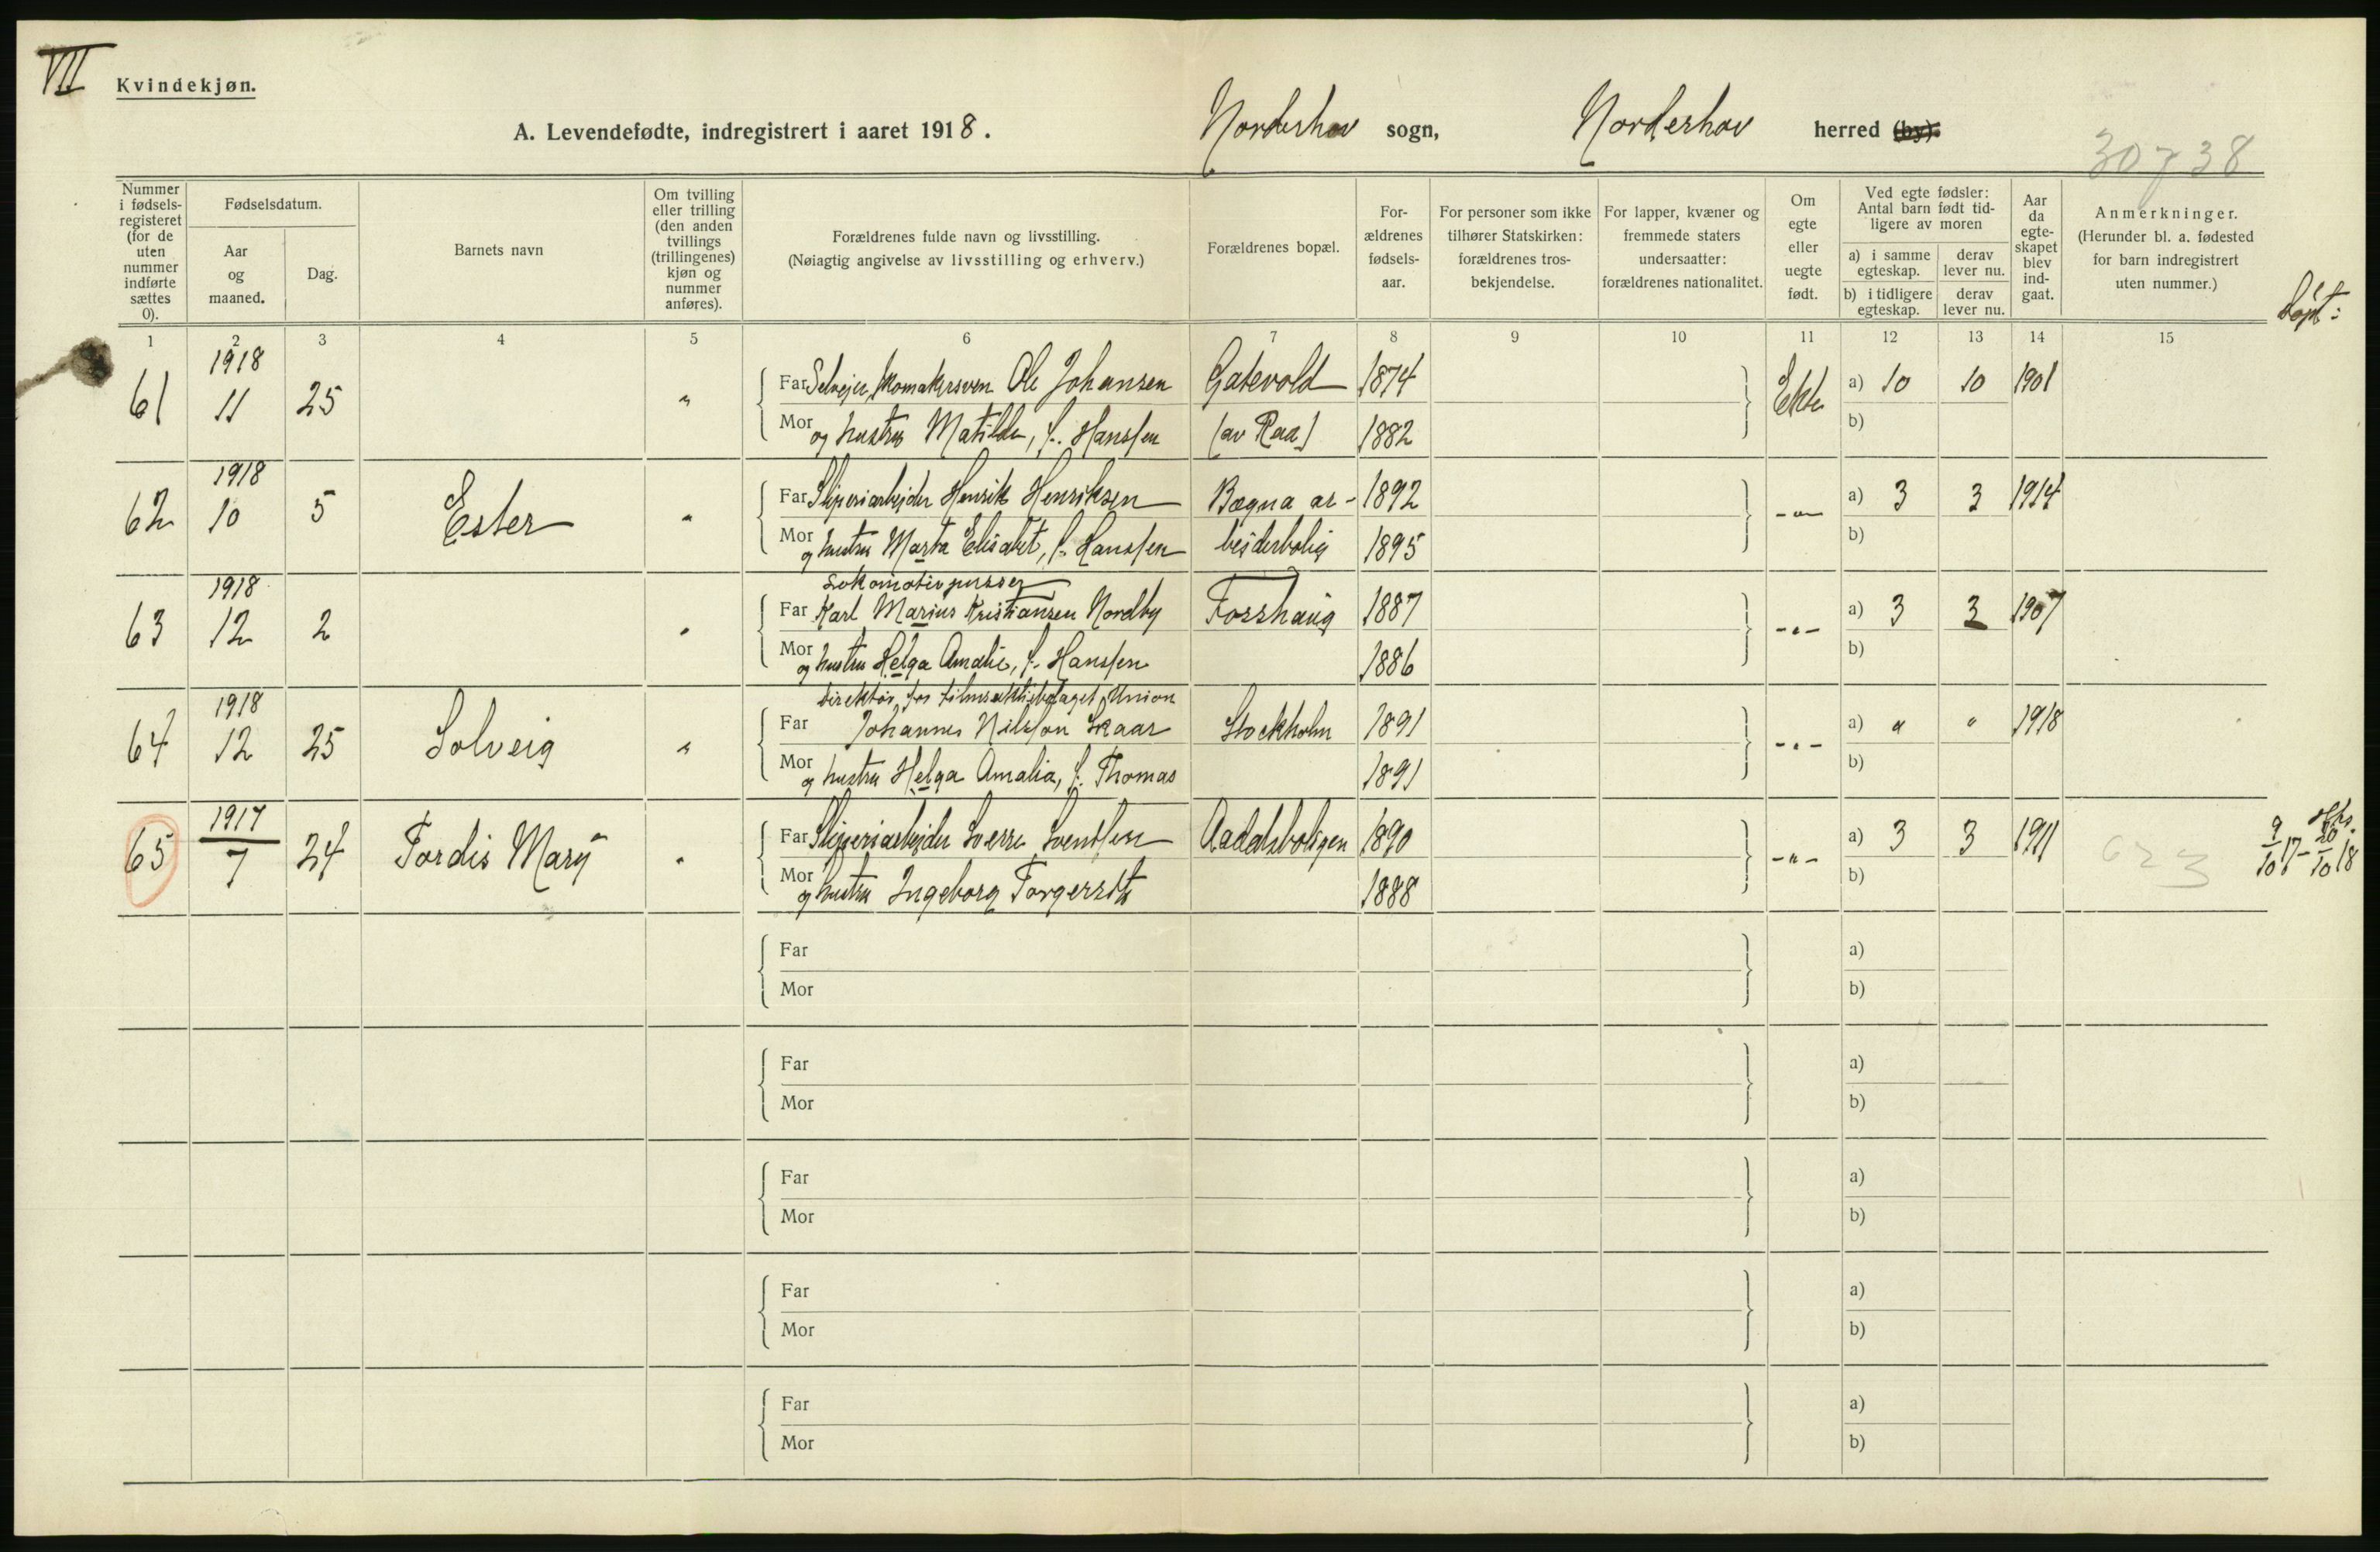 VII
Kvindekjøn.
A. Levendefødte, indregistrert i aaret 1918. Norderhov sogn, Norderhov herred (by).
30738
Nummer i fødsels-registeret (for de uten nummer indførte sættes 0).
Fødselsdatum.
Aar og maaned.
Dag.
Barnets navn
Om tvilling eller trilling (den anden tvillings (trillingenes) kjøn og nummer anføres).
Forældrenes fulde navn og livsstilling.
(Nøiagtig angivelse av livsstilling og erhverv.)
Forældrenes bopæl.
For-ældrenes fødsels-aar.
For personer som ikke tilhører Statskirken: forældrenes tros-bekjendelse.
For lapper, kvæner og fremmede staters undersaatter: forældrenes nationalitet.
Om egte eller uegte født.
Ved egte fødsler: Antal barn født tid-ligere av moren
a) i samme egteskap.
derav lever nu.
b) i tidligere egteskap.
derav lever nu.
Aar da egte-skapet blev ind-gaat.
Anmerkninger.
(Herunder bl. a. fødested for barn indregistrert uten nummer.)
Døpt:
1 2 3 4 5 6 7 8 9 10 11 12 13 14 15
1918
61 11 25 " Far Selveier, skomakersven Ole Johansen Gatevold 1874 Ekte a) 10 10 1901
Mor og hustru Matilde, f. Hanssen (av Raa) 1882 b)
1918
62 10 5 Ester " Far Sliperiarbeider Henrik Henriksen Bægna ar- 1892 -"- a) 3 3 1914
Mor og hustru Marta Elisabet, f. Hanssen beiderbolig 1895 b)
1918 Lokomotivpusser
63 12 2 " Far Karl Marius Kristiansen Nordby Fosshaug 1887 -"- a) 3 3 1907
Mor og hustru Helga Amalie, f. Hanssen 1886 b)
1918 Direktør for filmsaktiebolaget Union
64 12 25 Solveig " Far Johannes Nilsson Skaar Stockholm 1891 -"- a) " " 1918
Mor og hustru Helga Amalia, f. Thomas 1891 b)
1917
65 7 24 Tordis Mary " Far Sliperiarbeider Sverre Svendsen Aadalsboligen 1890 -"- a) 3 3 1911
Mor og hustru Ingeborg Torgersdtr 1888 b)
9/10 17 - 20/10 18
Far a)
Mor b)
Far a)
Mor b)
Far a)
Mor b)
Far a)
Mor b)
Far a)
Mor b)